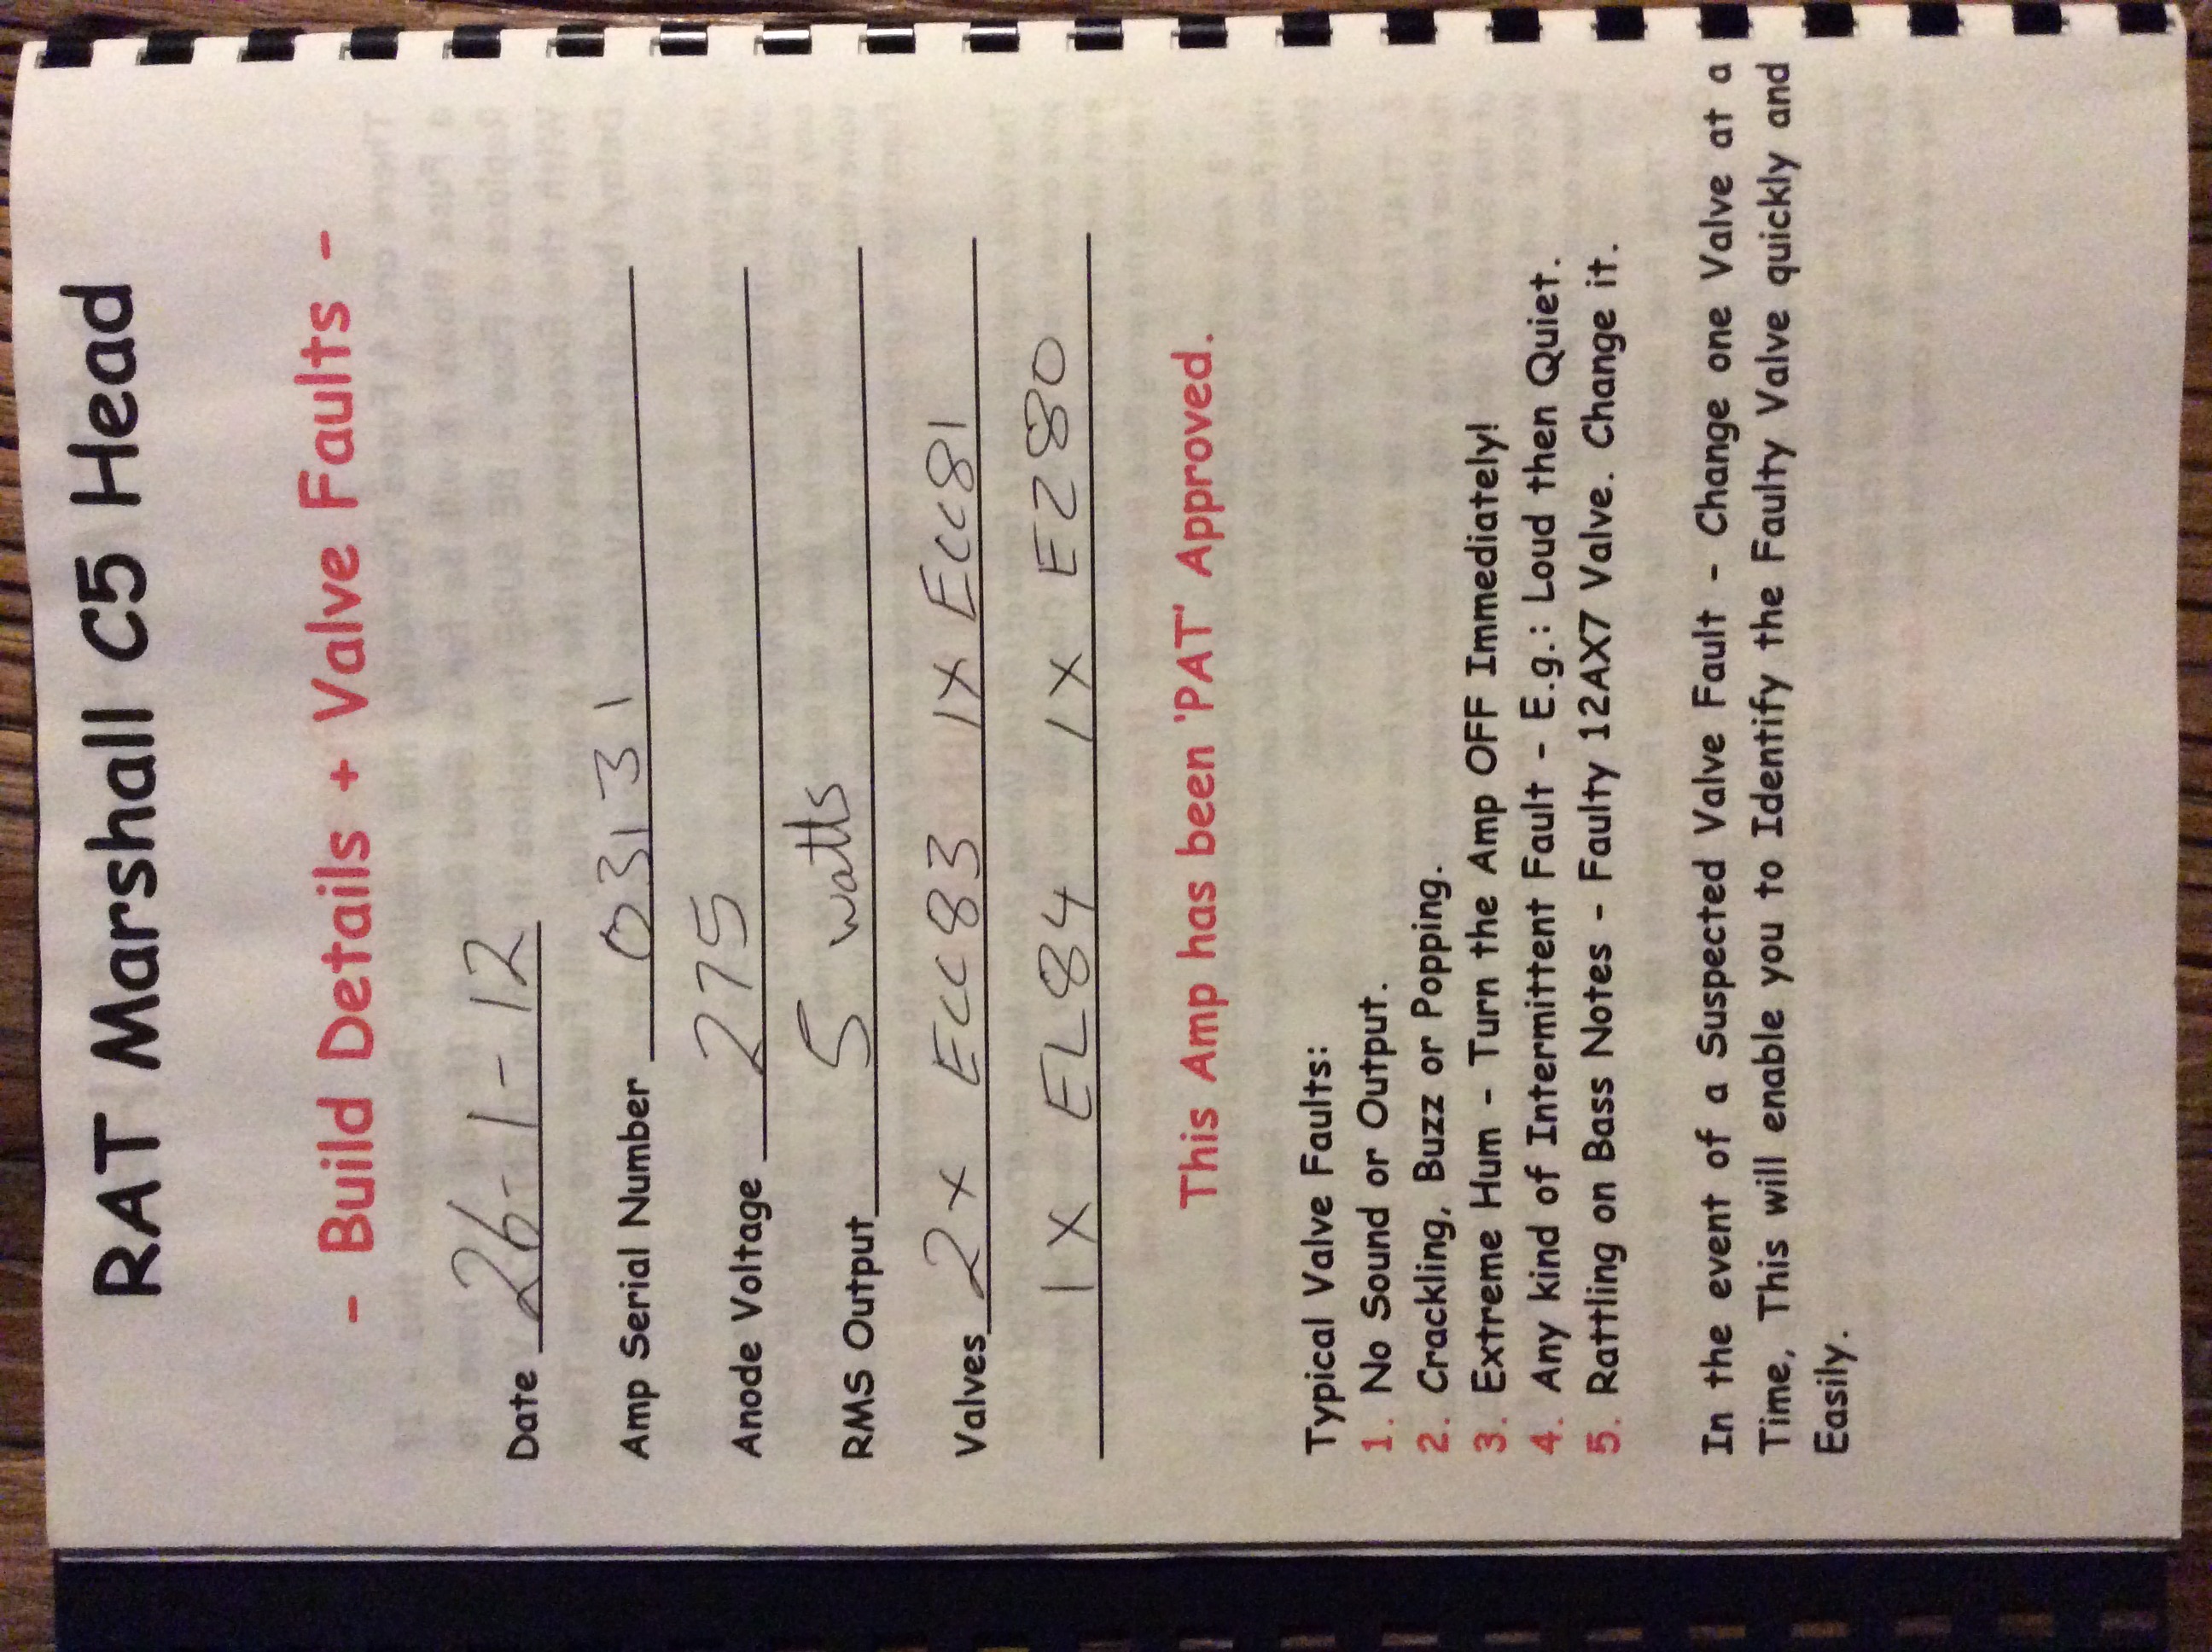 RAT Marshall C5 Head
- Build Details + Valve Faults -
Date 26-1-12
Amp Serial Number 03131
Anode Voltage 275
RMS Output 5 watts
Valves 2x ECC83 1x ECC81
1x EL84 1x EZ80
This Amp has been 'PAT' Approved.
Typical Valve Faults:
1. No Sound or Output.
2. Crackling, Buzz or Popping.
3. Extreme Hum - Turn the Amp OFF Immediately!
4. Any kind of Intermittent Fault - E.g.: Loud then Quiet.
5. Rattling on Bass Notes - Faulty 12AX7 Valve. Change it.
In the event of a Suspected Valve Fault - Change one Valve at a
Time, This will enable you to Identify the Faulty Valve quickly and
Easily.